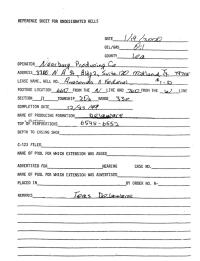 REFERENCE SHEET FOR UNDESIGNATED WELLS
DATE 1/9/2000
OIL/GAS Oil
COUNTY Lea
OPERATOR Nearburg Producing Co
ADDRESS 3300 N "A" St, Bldg 2, Suite 120 Midland Tx 79705
LEASE NAME, WELL NO. Anaconda 11 Federal #1-D
FOOTAGE LOCATION 660 FROM THE N LINE AND 760 FROM THE W LINE
SECTION 11 TOWNSHIP RANGE 33e
COMPLETION DATE 12/23/99
NAME OF PRODUCING FORMATION Delaware
TOP OF PERFORATIONS 6545-6553
DEPTH TO CASING SHOE
C-123 FILED
NAME OF POOL FOR WHICH EXTENSION WAS ASKED
ADVERTISED FOR HEARING CASE NO.
NAME OF POOL FOR WHICH EXTENSION WAS ADVERTISED
PLACED IN BY ORDER NO. R-
REMARKS Delaware